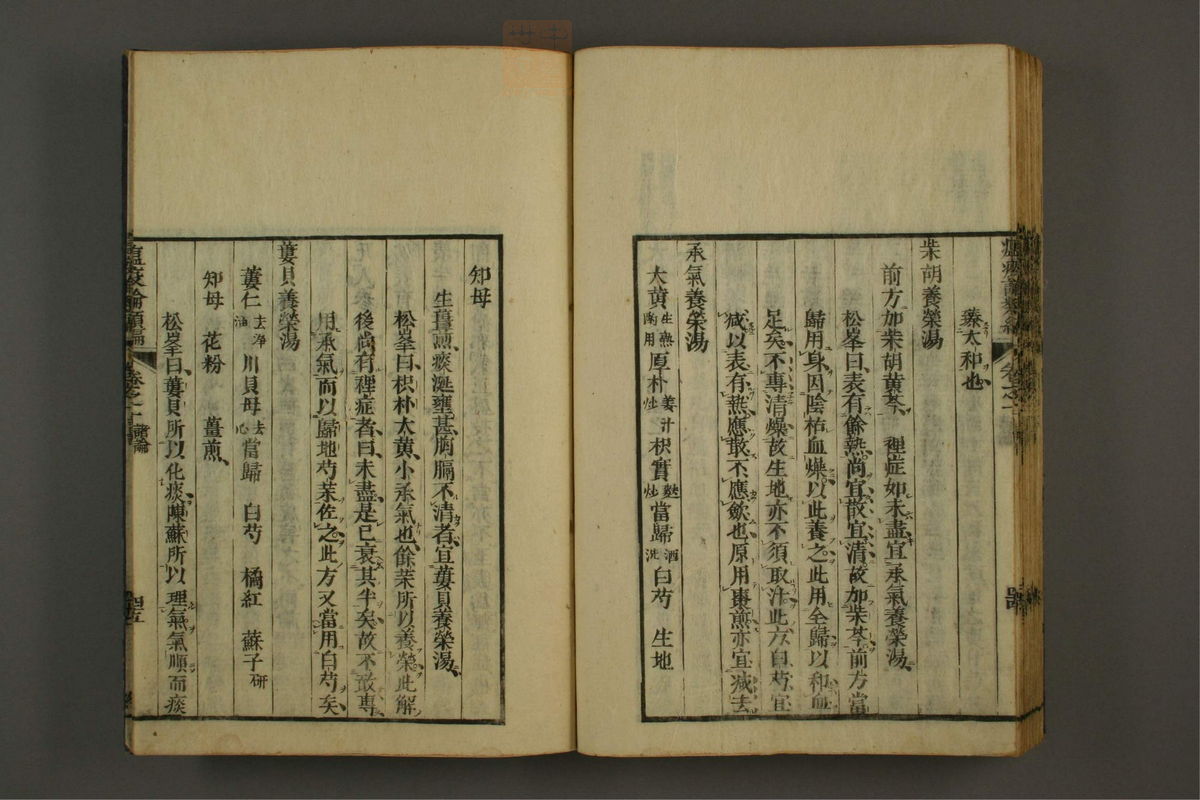 瘟疫論類編 卷之 
藥太和也
柴胡養榮湯
前方加柴胡黃芩 裡症如未盡宜承氣養榮湯
松峯曰表有餘熱尚宜散宜清故加柴芩前方當
歸用身因陰枯血燥以此養之此用全歸以和血
足矣不專清燥故生地亦不須取汁此方白芍宜
減以表有熱應散不應斂也原用棗煎亦宜減去
承氣養榮湯
大黃生熟酌用 厚朴姜汁炒 枳實麩炒 當歸酒洗 白芍 生地
知母
生薑煎痰涎壅甚胸膈不清者宜蔞貝養榮湯
松峯曰枳朴大黃小承氣也餘藥所以養榮此解
後尚有裡症者曰未盡是已衰其半矣故不敢專
用承氣而以歸地芍藥佐之此方又當用白芍矣
蔞貝養榮湯
蔞仁去净油 川貝母去心 當歸 白芍 橘紅 蘇子研
知母 花粉 薑煎
松峯曰蔞貝所以化痰陳蘇所以理氣氣順而痰
瘟疫論類編 卷之 諸論 四十五